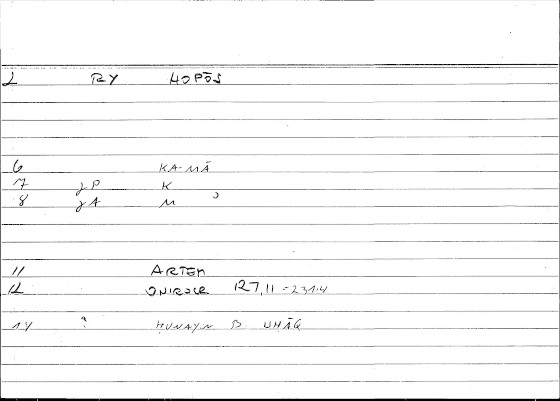 1 RY HOPŌS
6 KA-MĀ
7 JP K
8 JA M
11 ARTEM
12 ONIROCR 127,11 = 231.4
14 ? ḤUNAYN B